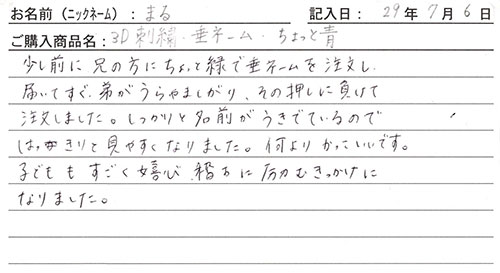 お名前（ニックネーム）：まる 記入日：29年7月6日
ご購入商品名：3D刺繍・垂ネーム・ちょっと青
少し前に兄の方にちょっと緑で垂ネームを注文し、
届いてすぐ、弟がうらやましがり、その押しに負けて
注文しました。しっかりと名前がうきでているので
はっきりと見やすくなりました。何よりかっこいいです。
子どももすごく嬉び 稽古に励むきっかけに
なりました。